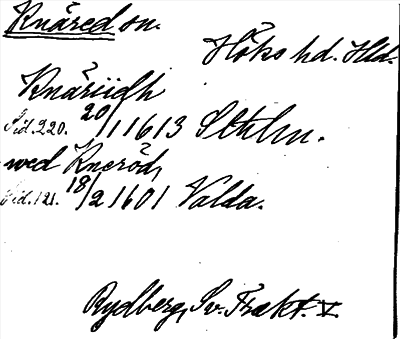 Knäred sn.
Höks hd. Hld.
Knäriidh
Sid. 220. 20/1 1613 Sthlm.
wed Kneröd,
Sid. 121. 18/2 1601 Valda.
Rydberg, Sv. Trakt. V.